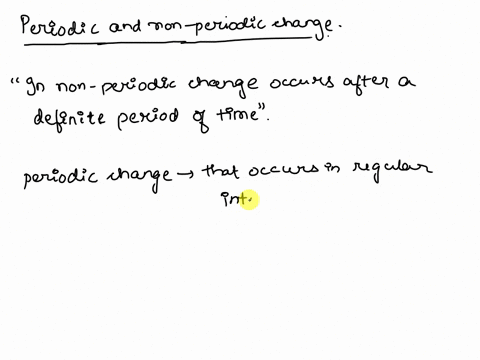 Periodic and non-periodic change.
"In non-periodic change occurs after a
definite period of time".
periodic change → that occurs in regular
int.